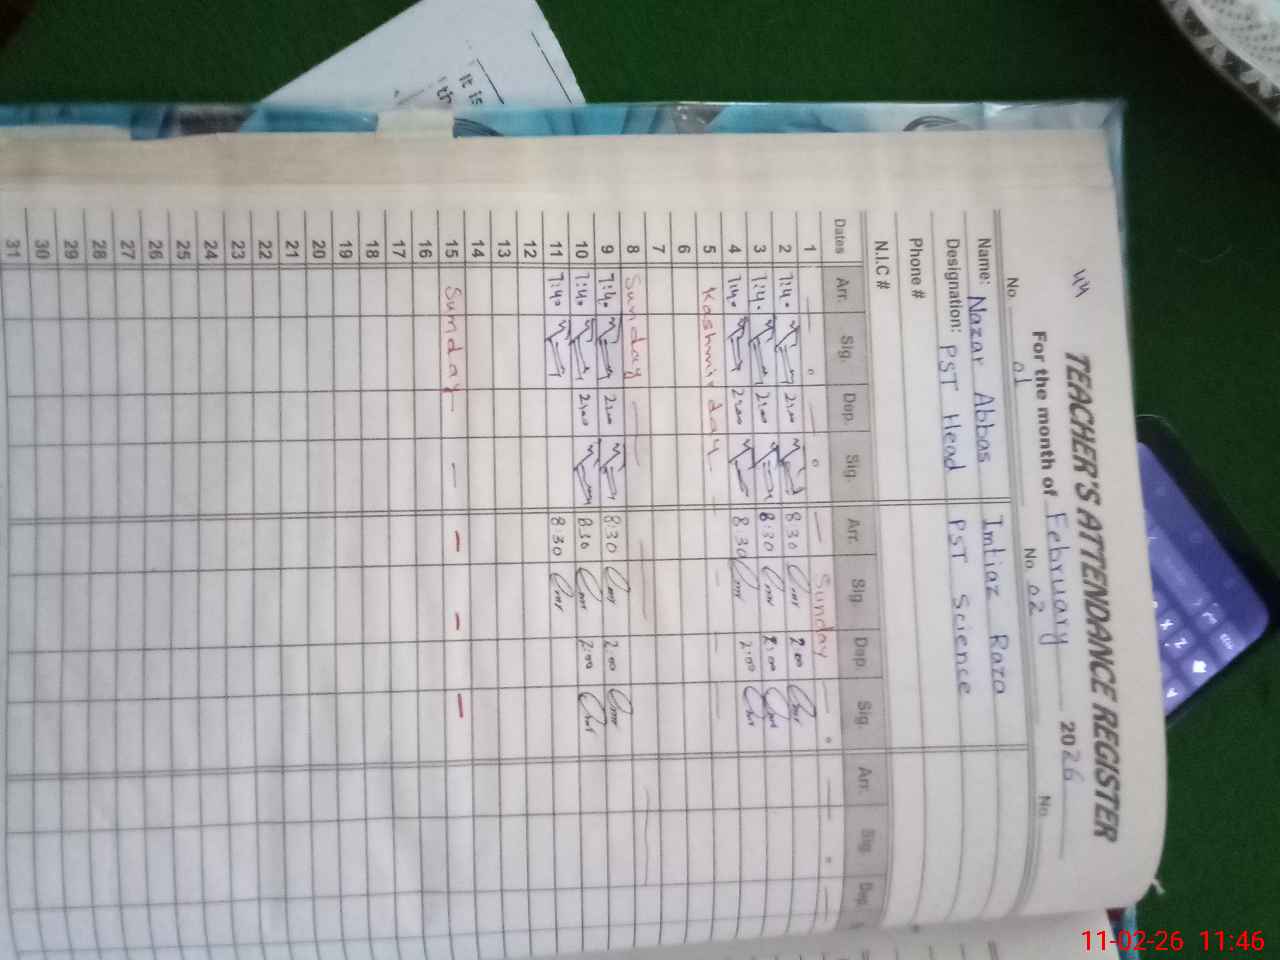 It is
th
44
TEACHER'S ATTENDANCE REGISTER
For the month of February 2026
No. 01 No 02 No.
Name: Nazar Abbas Imtiaz Raza
Designation: PST Head PST Science
Phone #
N.I.C #
Dates Arr. Sig. Dep. Sig. Arr. Sig Dep. Sig. Arr. Sig. Dep.
1 Sunday
2 7:40 2:00 8:30 2:00
3 7:40 2:00 8:30 2:00
4 7:40 2:00 8:30 2:00
5 Kashmir day
6
7
8 Sunday
9 7:40 2:00 8:30 2:00
10 7:40 2:00 8:30 2:00
11 7:40 8:30
12
13
14
15 Sunday
16
17
18
19
20
21
22
23
24
25
26
27
28
29
30
31
11-02-26 11:46